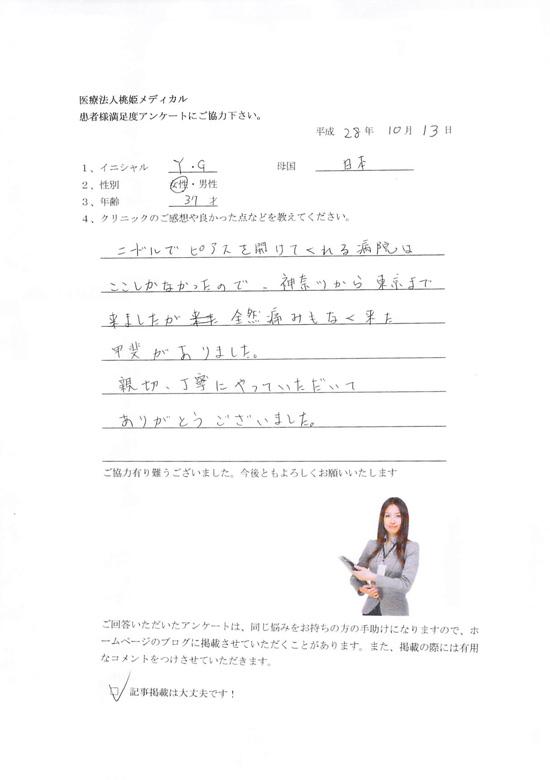 医療法人桃姫メディカル
患者様満足度アンケートにご協力下さい。
平成 28年 10月 13日
1、イニシャル Y・G 母国 日本
2、性別 女性・男性
3、年齢 37才
4、クリニックのご感想や良かった点などを教えてください。
ニードルでピアスを開けてくれる病院は
ここしかなかったので、神奈川から東京まで
来ましたが 来た 全然痛みもなく来た
甲斐がありました。
親切、丁寧にやっていただいて
ありがとうございました。
ご協力有り難うございました。今後ともよろしくお願いいたします
ご回答いただいたアンケートは、同じ悩みをお持ちの方の手助けになりますので、ホ
ームページのブログに掲載させていただくことがあります。また、掲載の際には有用
なコメントをつけさせていただきます。
記事掲載は大丈夫です!